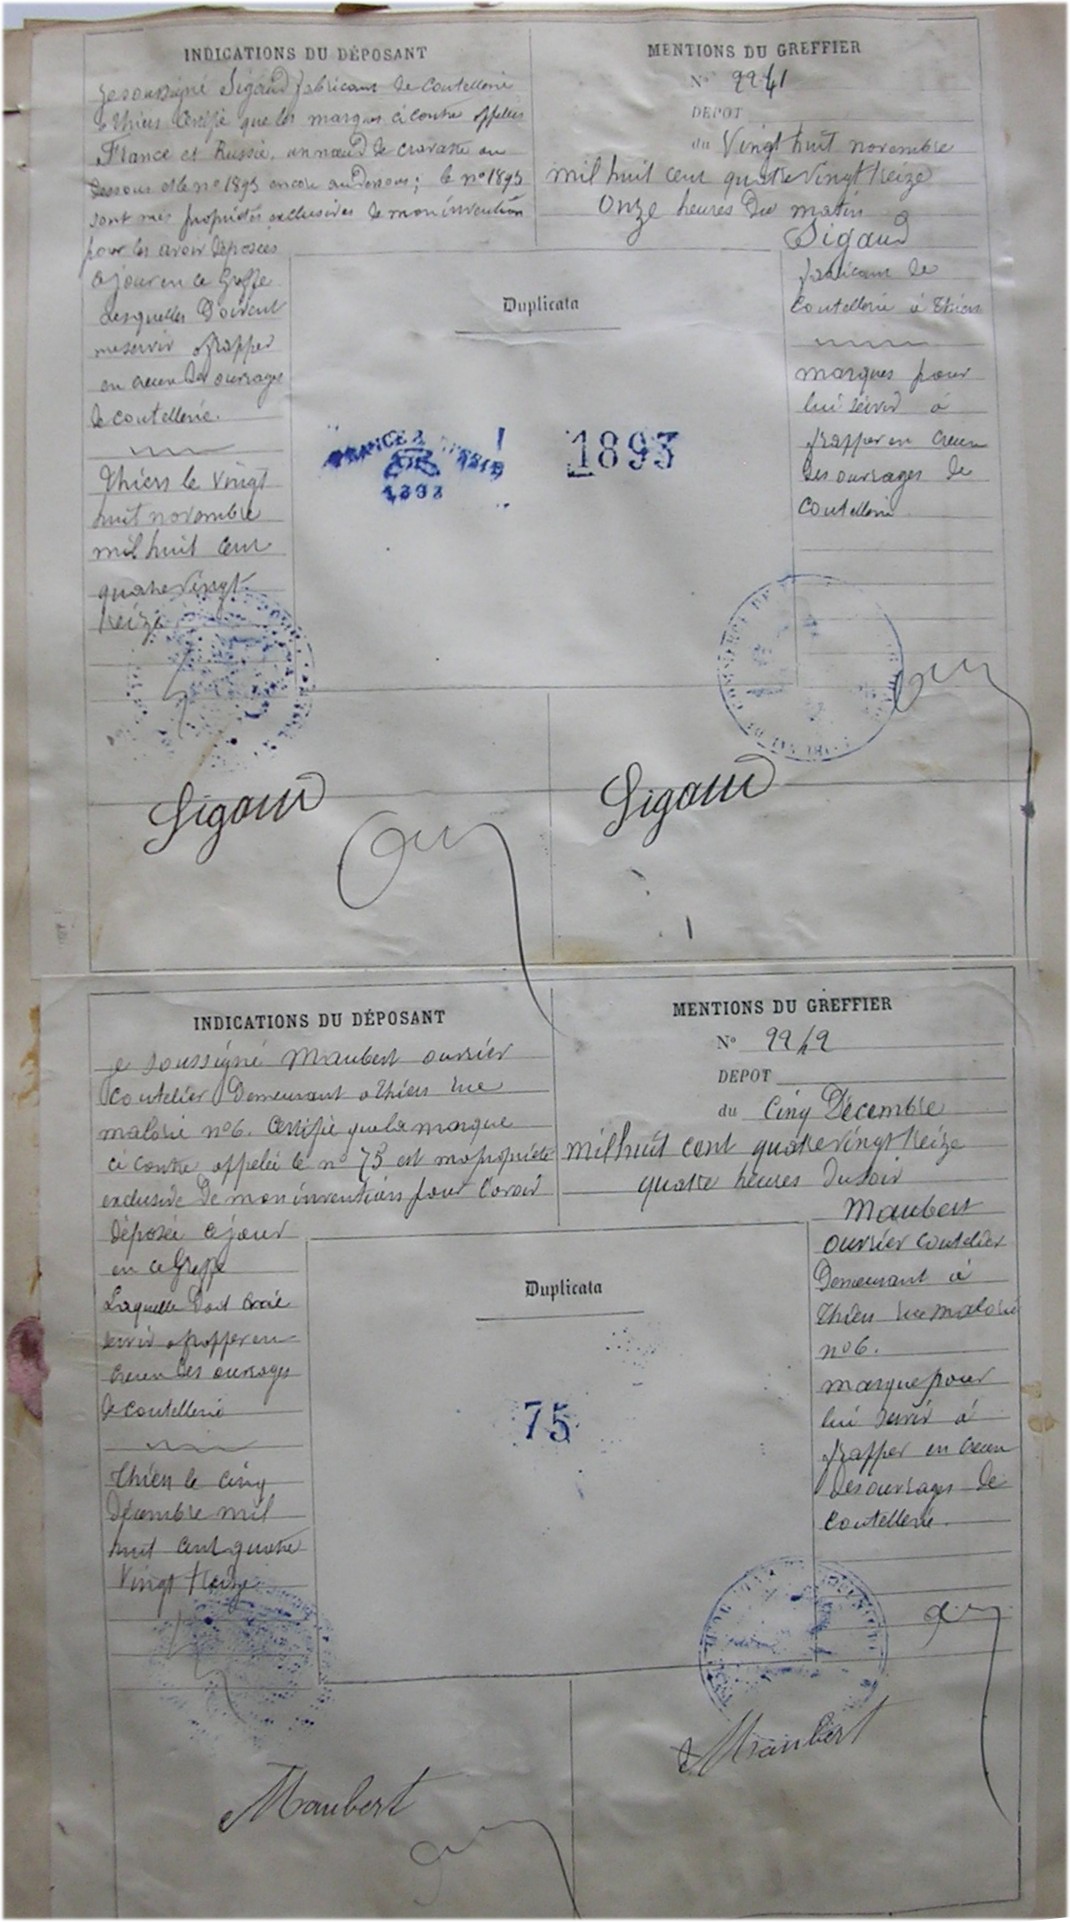 INDICATIONS DU DÉPOSANT
Je soussigné Sigaud fabricant de coutellerie
à Thiers Certifie que les marques ci contre appelées
France et Russie, un nœud de cravate au
dessous et le no 1893 encore au dessous; le no 1893
sont mes propriétés exclusives de mon invention
pour les avoir déposées
ce jour en ce Greffe
Lesquelles doivent
me servir à frapper
en creux des ouvrages
de coutellerie.
Thiers le vingt
huit novembre
mil huit cent
quatre vingt
treize
MENTIONS DU GREFFIER
No 2241
DEPOT
du Vingt huit novembre
mil huit cent quatre vingt treize
Onze heures du matin
Sigaud
fabricant de
Coutellerie à Thiers
marques pour
lui servir à
frapper en creux
des ouvrages de
Coutellerie
Duplicata
FRANCE & RUSSIE
1893
1893
Sigaud
Sigaud
INDICATIONS DU DÉPOSANT
Je soussigné Maubert ouvrier
Coutelier Demeurant à Thiers rue
malorie no 6. Certifie que la marque
ci contre appelée le no 75 est ma propriété
exclusive de mon invention pour l'avoir
déposée ce jour
en ce Greffe
Laquelle doit
servir à frapper en
creux des ouvrages
de coutellerie
Thiers le cinq
décembre mil
huit cent quatre
Vingt treize
MENTIONS DU GREFFIER
No 2242
DEPOT
du Cinq Décembre
mil huit cent quatre vingt treize
quatre heures du soir
Maubert
ouvrier coutelier
Demeurant à
Thiers rue malorie
no 6.
marque pour
lui servir à
frapper en creux
des ouvrages de
Coutellerie.
Duplicata
75
Maubert
Maubert